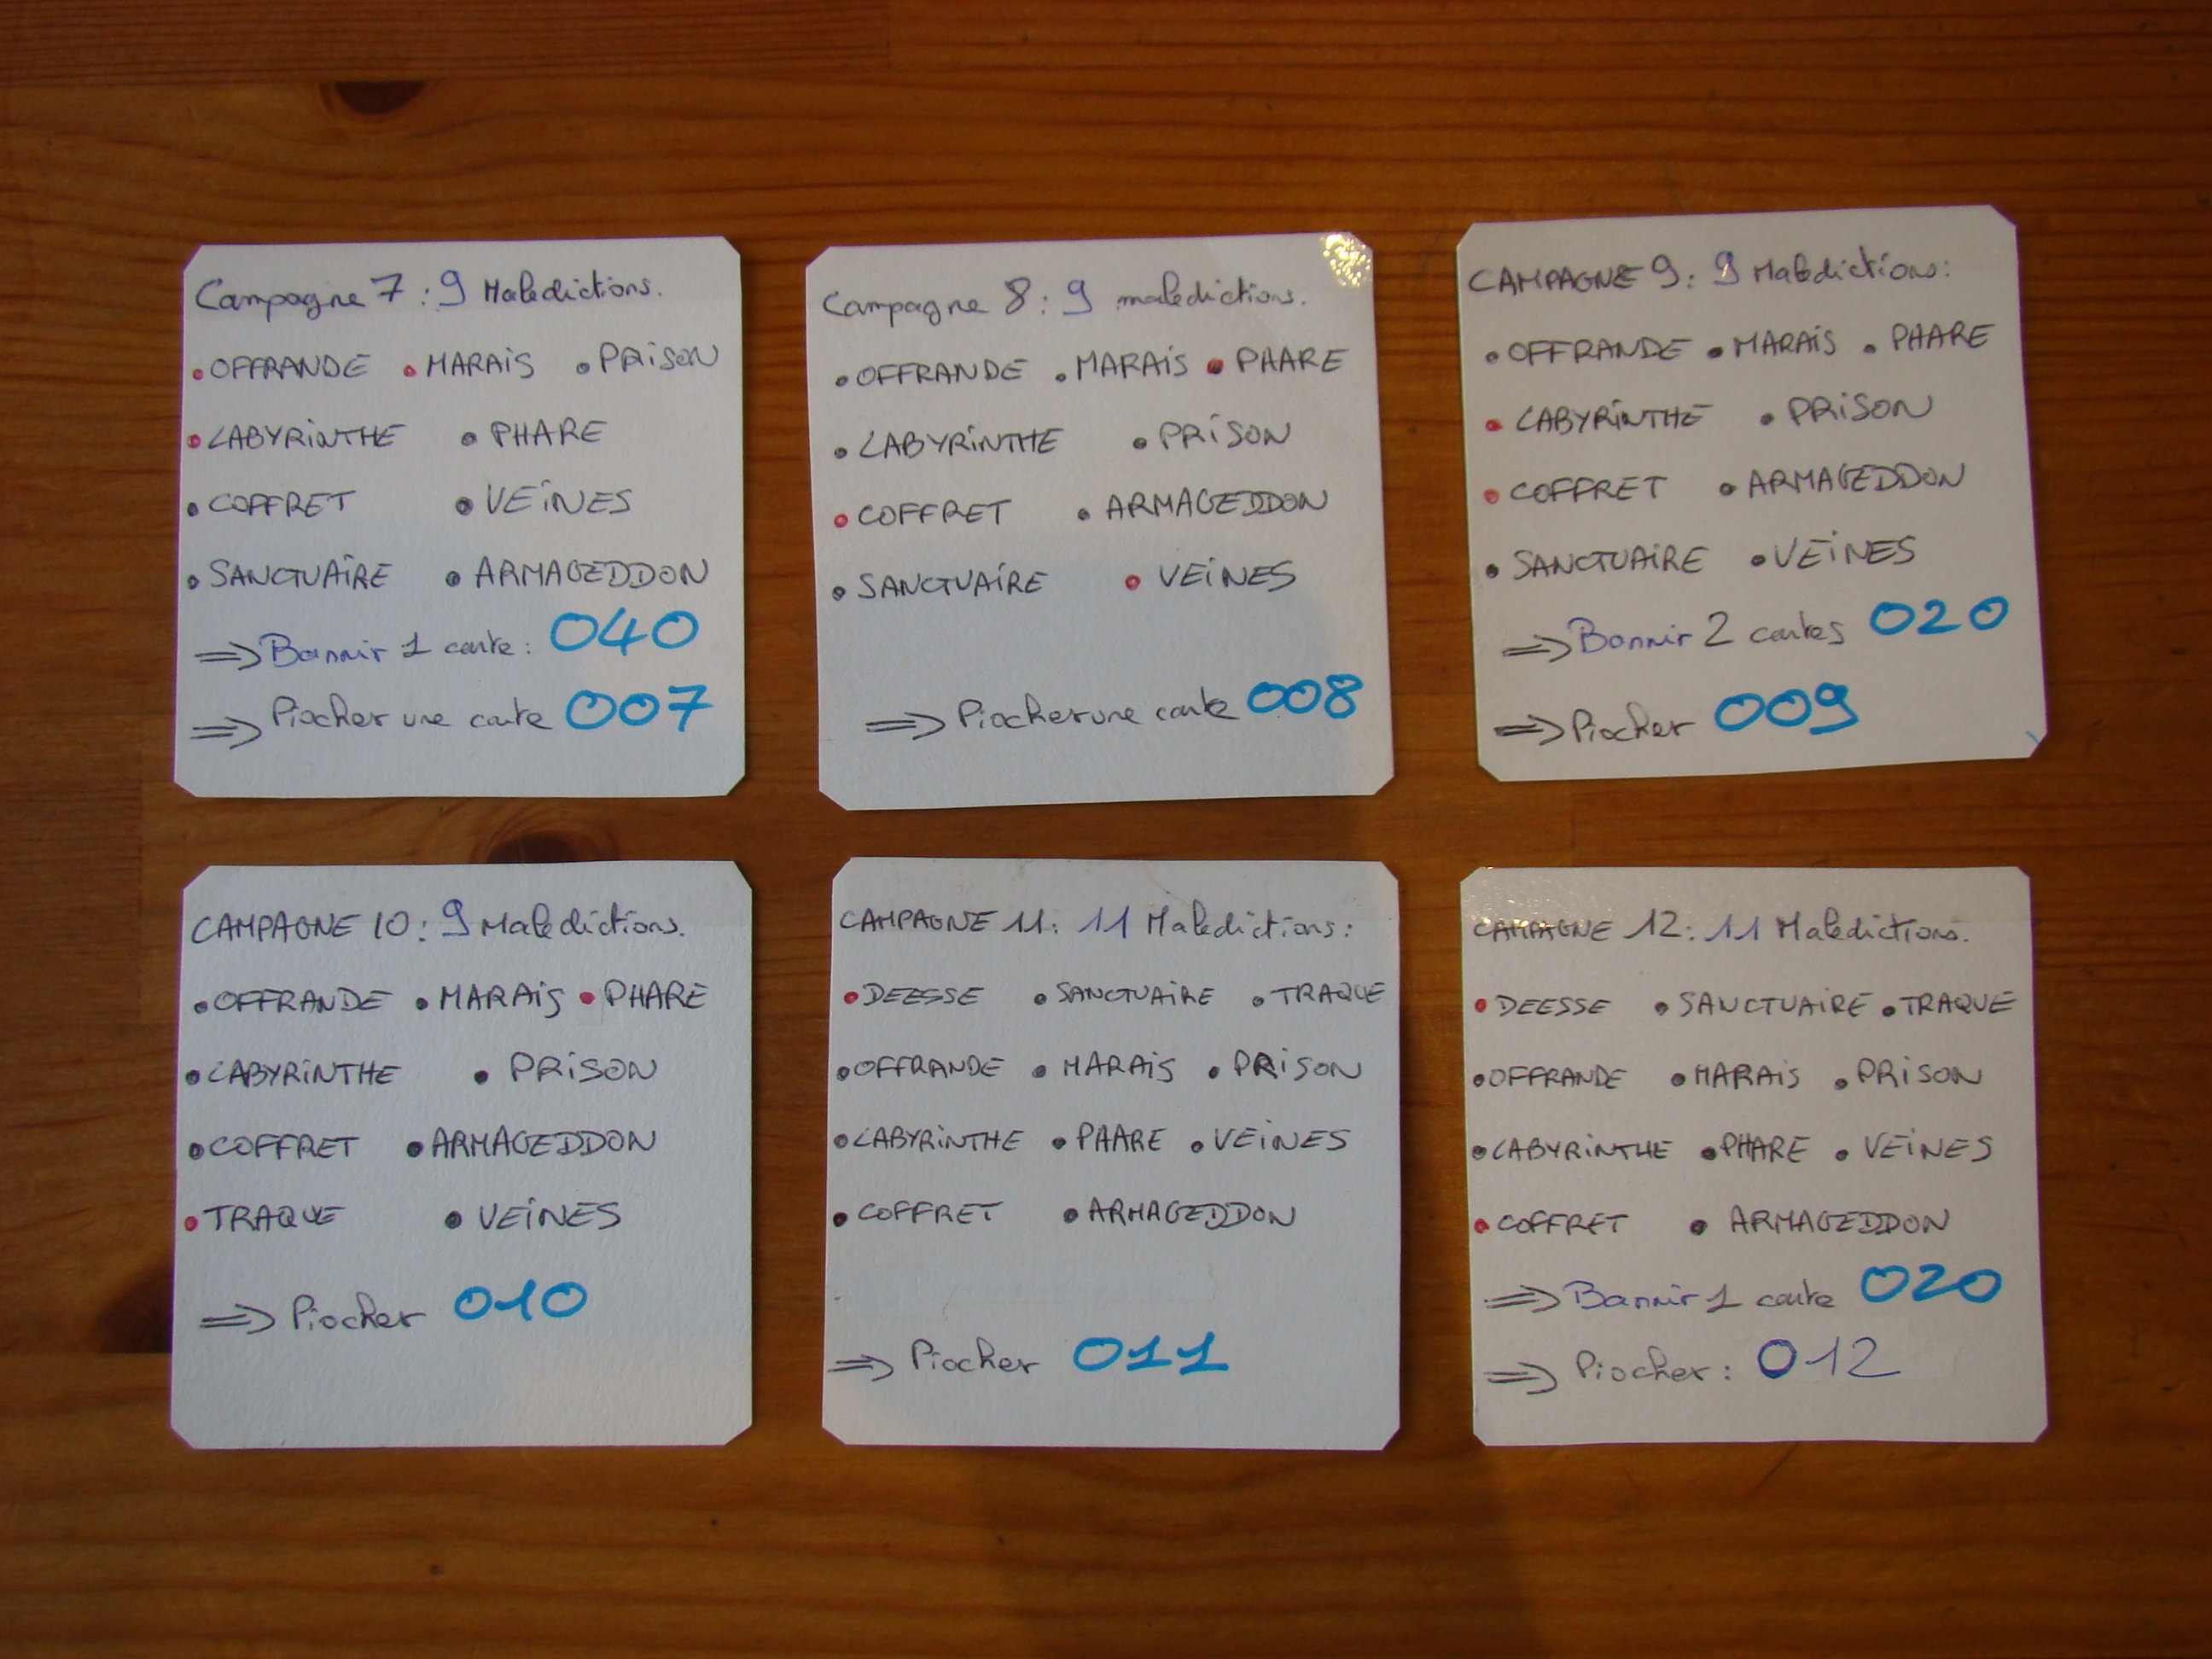 Campagne 7 : 9 Maledictions.
• OFFRANDE • MARAIS • PRISON
• LABYRINTHE • PHARE
• COFFRET • VEINES
• SANCTUAIRE • ARMAGEDDON
⇒ Bannir 1 carte : 040
⇒ Piocher une carte 007
Campagne 8 : 9 maledictions.
• OFFRANDE • MARAIS • PHARE
• LABYRINTHE • PRISON
• COFFRET • ARMAGEDDON
• SANCTUAIRE • VEINES
⇒ Piocher une carte 008
CAMPAGNE 9 : 9 Maledictions :
• OFFRANDE • MARAIS • PHARE
• LABYRINTHE • PRISON
• COFFRET • ARMAGEDDON
• SANCTUAIRE • VEINES
⇒ Bannir 2 cartes 020
⇒ Piocher 009
CAMPAGNE 10 : 9 Maledictions.
• OFFRANDE • MARAIS • PHARE
• LABYRINTHE • PRISON
• COFFRET • ARMAGEDDON
• TRAQUE • VEINES
⇒ Piocher 010
CAMPAGNE 11 : 11 Maledictions :
• DEESSE • SANCTUAIRE • TRAQUE
• OFFRANDE • MARAIS • PRISON
• LABYRINTHE • PHARE • VEINES
• COFFRET • ARMAGEDDON
⇒ Piocher 011
CAMPAGNE 12 : 11 Maledictions.
• DEESSE • SANCTUAIRE • TRAQUE
• OFFRANDE • MARAIS • PRISON
• LABYRINTHE • PHARE • VEINES
• COFFRET • ARMAGEDDON
⇒ Bannir 1 carte 020
⇒ Piocher : 012